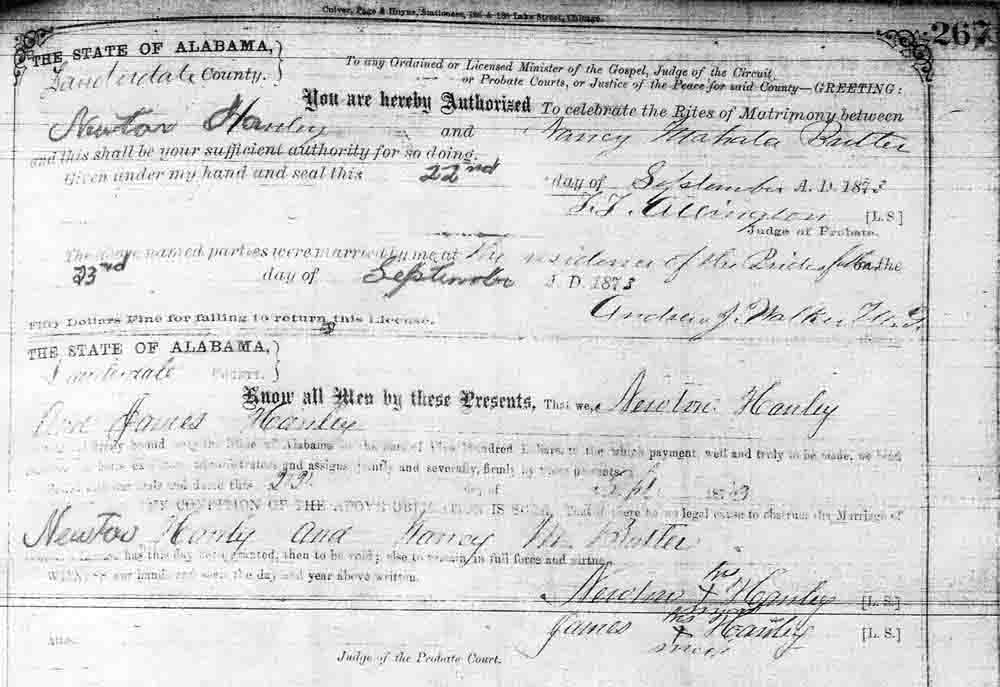 Culver, Page & Hoyne, Stationers, 118 & 120 Lake Street, Chicago.
267
THE STATE OF ALABAMA,
Lauderdale County.
To any Ordained or Licensed Minister of the Gospel, Judge of the Circuit
or Probate Courts, or Justice of the Peace for said County—GREETING:
You are hereby Authorized To celebrate the Rites of Matrimony between
Newton Hanley and Nancy Mahala Butler
and this shall be your sufficient authority for so doing.
Given under my hand and seal this 22nd day of September A. D. 1873
T. T. Allington [L. S.]
Judge of Probate.
The above named parties were married by me at the residence of the Brides the
23rd day of September A. D. 1873
Andrew J. Walker
Fifty Dollars Fine for failing to return this License.
THE STATE OF ALABAMA,
Lauderdale County.
Know all Men by these Presents, That we, Newton Hanley
And James Hanley
bound unto the State of Alabama in the sum of Two Hundred Dollars, to the which payment well and truly to be made, we bind
administrators and assigns jointly and severally, firmly by these presents.
seals and dated this 22 day of Sept 1873
THE CONDITION OF THE ABOVE OBLIGATION IS SUCH, That if there be no legal cause to obstruct the Marriage of
Newton Hanly and Nancy M. Butler
has this day been granted, then to be void; else to remain in full force and virtue.
WITNESS our hands and seals the day and year above written.
Newton his X Hanley [L. S.]
mark
James his X Hanley [L. S.]
mark
Attest
Judge of the Probate Court.